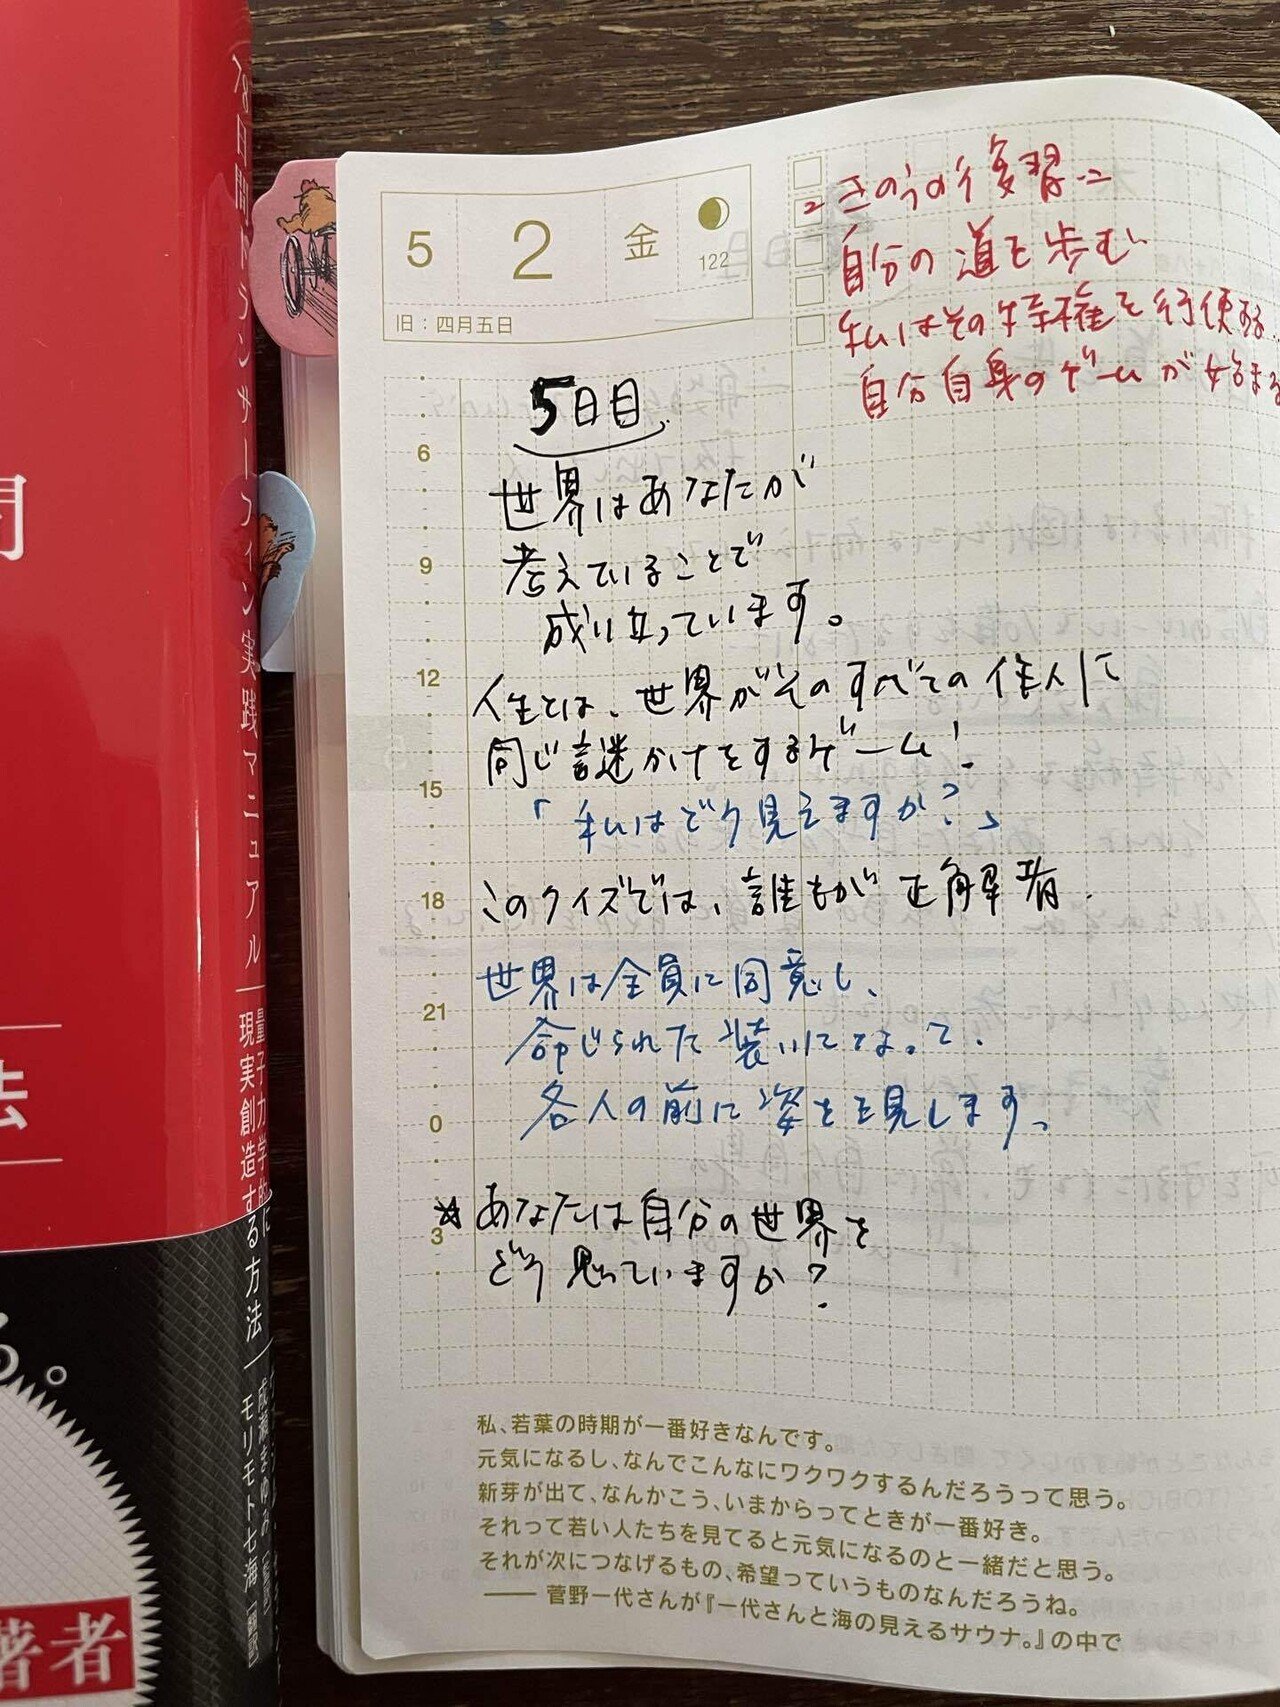 5 2 金
122
旧：四月五日
きのうの復習
自分の道を歩む
私はその特権を行使する
自分自身のゲームが始まる
5日目
世界はあなたが
考えていることで
成り立っています。
人生とは、世界がそのすべての住人に
同じ謎かけをするゲーム!
「私はどう見えますか?」
このクイズでは、誰もが正解者.
世界は全員に同意し、
命じられた装いになって、
各人の前に姿を見します。
☆あなたは自分の世界を
どう思っていますか?
6
9
12
15
18
21
0
3
私、若葉の時期が一番好きなんです。
元気になるし、なんでこんなにワクワクするんだろうって思う。
新芽が出て、なんかこう、いまからってときが一番好き。
それって若い人たちを見てると元気になるのと一緒だと思う。
それが次につなげるもの、希望っていうものなんだろうね。
—— 菅野一代さんが『一代さんと海の見えるサウナ。』の中で
78日間トランサーフィン実践マニュアル
量子力学的に
現実創造する方法
成瀬まゆみ［監修］
モリモト七海［翻訳］
間
法
る。
著者